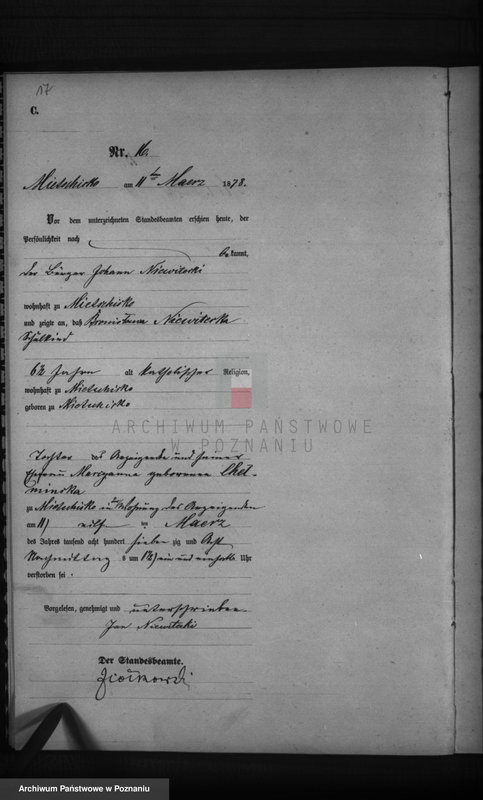 17
C.
Nr. 16.
Mietschisko am 11ten Maerz 1878.
Vor dem unterzeichneten Standesbeamten erschien heute, der
Persönlichkeit nach
bekannt,
der Bürger Johann Niewitecki
wohnhaft zu Mietschisko
und zeigte an, daß Bronislawa Niewitecka
Schulkind
6½ Jahre alt katholischer Religion,
wohnhaft zu Mietschisko
geboren zu Mietschisko
ARCHIWUM PAŃSTWOWE
W POZNANIU
Tochter des Anzeigende und seiner
Ehefrau Maryanna geborenen Chel-
minska
zu Mietschisko in Wohnung des Anzeigenden
am 11) elften Maerz
des Jahres tausend acht hundert siebenzig und Acht
Nachmittag s um 1½) ein und einhalb Uhr
verstorben sei.
Vorgelesen, genehmigt und unterschrieben
Jan Niewitecki
Der Standesbeamte.
Ziołkowski
Archiwum Państwowe w Poznaniu